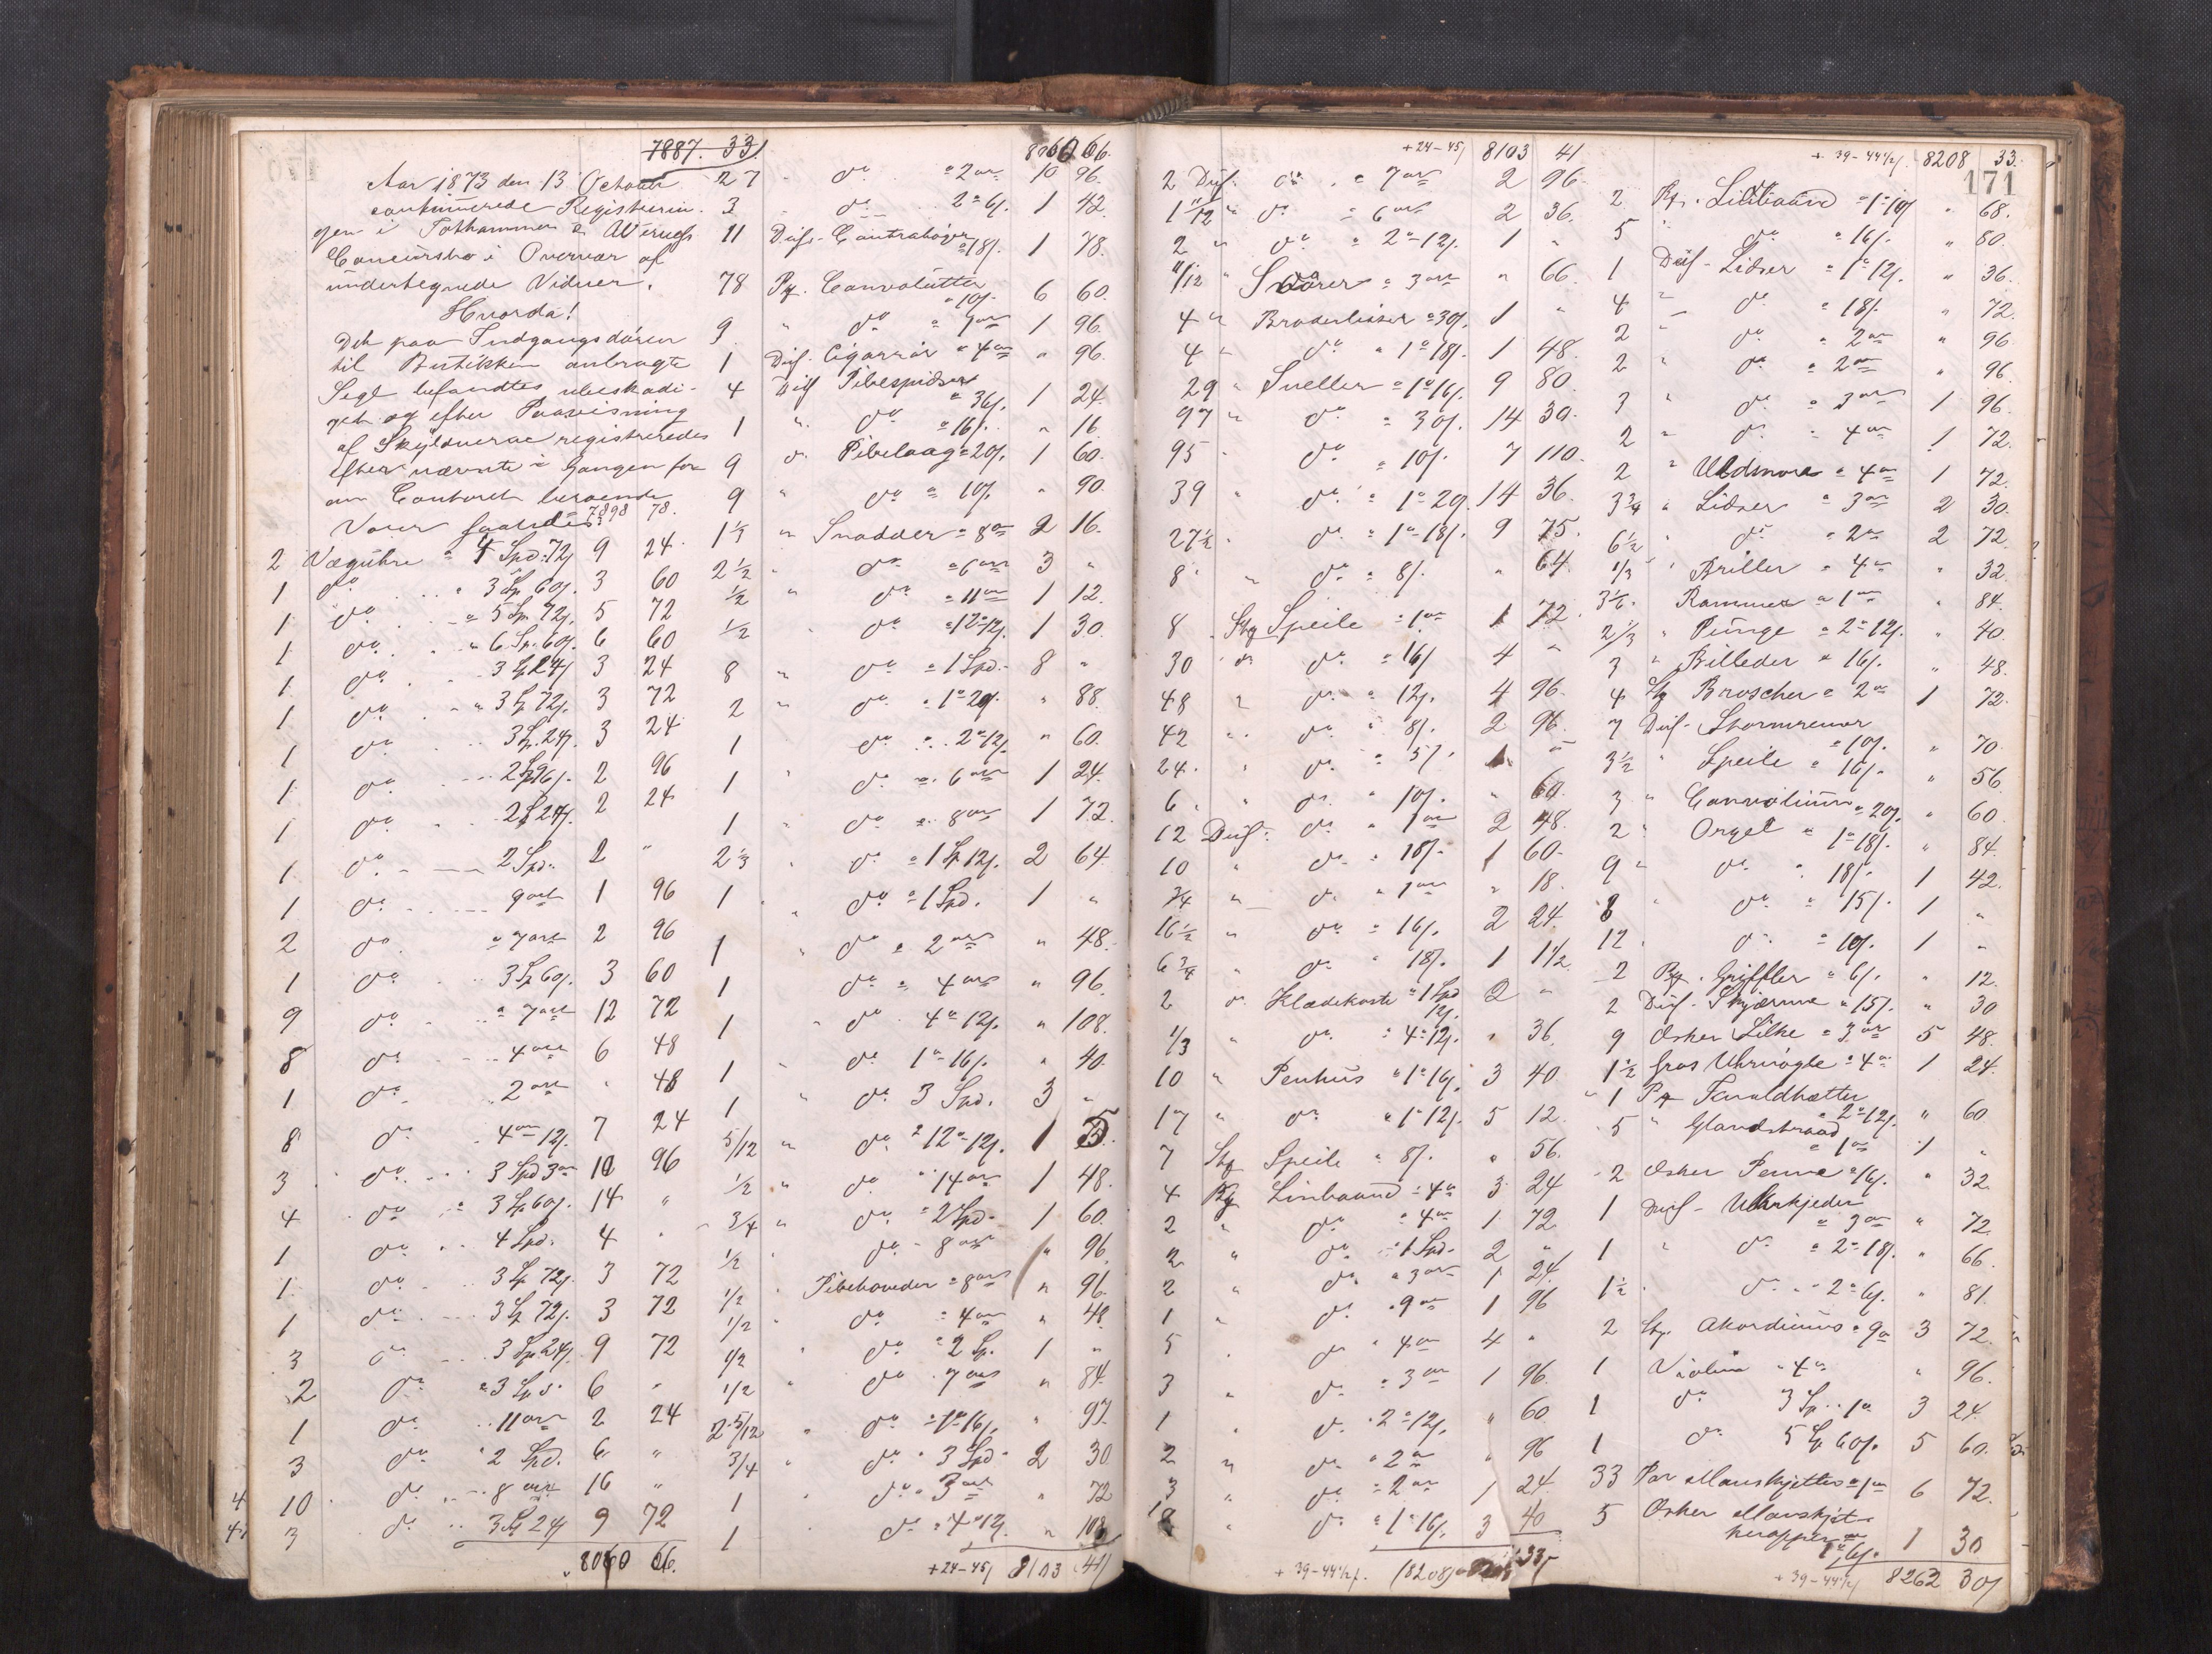 7887. 33
Aar 1873 den 13 October
continuerede Registrerin-
gen i
i Overvær af
undertegnede Vidner.
Hvorda!
Det paa Indgangsdøren
til Butikken anbragte
Segl befandtes ubeskadi-
get og efter Paavisning
af Skyldnerne registreredes
efternævnte i Gangen for-
an Contoret beroende
Varer saaledes: 7898 78.
2 Væguhre a 4 Spd. 72 9 24
1 do 3 Sp 60 3 60
1 do a 5 Sp 72 5 72
1 do 6 Sp. 60 6 60
1 do 3 Sp 24 3 24
1 do 3 Sp 72 3 72
1 do 3 Sp. 24 3 24
1 do 2 Sp 96 2 96
1 do 2 Sp 24 2 24
1 do 2 Spd. 2 "
1 do 9 ort 1 96
2 do a 7 ort 2 96
1 do 3 Sp 60 3 60
9 do a 7 ort 12 72
8 do 4 ort 6 48
1 do 2 ort " 48
8 do 4 ort 12 7 24
3 do 3 Spd 3 ort 10 96
4 do a 3 Sp 60 14 "
1 do 4 Spd. 4 "
1 do 3 Sp 72 3 72
1 do 3 Sp 72 3 72
3 do 3 Sp 24 9 72
2 do a 3 Sp 6 "
1 do 11 ort 2 24
3 do 2 Spd. 6 "
10 do 8 ort 16 "
3 do 3 Sp 24 9 72
8060 66.
8060 66.
27 do a 2 ort 10 96.
3 do 2 a 6 1 42.
11 Duss. Contrabøger a 18 1 78.
78 Pk. Convolutter a 10 6 60.
9 " do a 1 ort 1 96.
1 Dus. Cigarrør a 4 ort " 96.
4 Dus Pibespidser a 36 1 24.
1 " do a 16 " 16
9 do Pibelaag a 20 1 60.
9 " do a 10 " 90.
1 1/3 " Snadder a 8 ort 2 16.
2 1/2 " do a 6 ort 3 "
1/2 " do a 11 ort 1 12.
1/2 do a 12 a 12 1 30.
8 " do a 1 Spd. 8 "
2 " do 1 a 20 " 88.
1 do 2 a 12 " 60.
1 " do a 6 ort 1 24.
1 " do a 8 ort 1 72.
2 1/3 " do a 1 Sp 12 2 64
1 " do a 1 Spd. 1 "
1 " do a 2 ort " 48.
1 do a 4 ort " 96.
1 " do 4 a 12 " 108.
1 do 1 a 16 " 40.
1 " do 3 Spd. 3 "
5/12 " do a 12 a 12 1 5.
1/2 " do 14 ort 1 48.
3/4 " do a 2 Spd. 1 60.
1/2 " do 8 ort " 96
1/2 " Pibehoveder a 8 ort " 96.
1/2 do a 4 ort " 48
1/2 " do a 2 Sp. 1 "
1/2 " do 7 ort " 84.
2 5/12 " do a 1 a 16 " 97.
3/4 " do 3 Spd 2 30
1 do a 3 ort " 72
1 do a 4 a 12 " 108
+24-45 8103 41
+24-45 8103 41
2 Dus. do a 7 ort 2 96
1 11/12 " do a 6 ort 2 36.
2 " do a 2 a 12 1 "
11/12 " a 3 ort " 66.
4 " Broderlisser a 30 1 "
4 " do 1 a 18 1 48.
29 " Sneller a 1 a 16 9 80.
97 " do a 30 14 30.
95 do a 10 7 110.
39 " do a 1 a 20 14 36.
27 1/2 do a 1 a 18 9 75.
8 " do a 8 " 64.
8 Stk Speile a 1 ort 1 72.
30 do do a 16 4 "
48 " do a 12 4 96.
42 " do a 8 2 96.
24. " do a 5 1 "
6 " do a 10 " 60.
12 Dus. do a 1 ort 2 48.
10 " do a 18 1 60.
3/4 " do a 1 ort " 18.
16 1/2 " do a 16 2 24.
6 3/4 " do a 18 1 1 1/2
2 do Klædekoste a 1 Spd 12 2 "
1/3 " do a 4 a 12 " 36.
10 " Penhus a 1 a 16 3 40
17 " do a 1 a 12 5 12.
7 Stk Speile a 8 " 56.
4 Pk Linbaand a 4 a 3 24
2 " do a 4 ort 1 72.
2 " do a 1 Spd. 2 "
2 " do a 3 ort 1 24.
1 " do a 9 ort 1 96
5 do a 4 ort 4 "
3 " do a 3 ort 1 96.
1 do a 2 a 12 " 60
2 " do a 2 a " 96
3 " do a 2 ort 1 24.
18 " do a 1 a 16 3 40
+39-44 1/2 (8208) 33
+39-44 1/2 8208 33.
171
2 Pk. a 1 a 10 " 68.
5 do a 16 " 80.
1 Dus. Lidser a 1 a 12 " 36.
4 " do a 18 " 72.
2 " do a 2 ort " 96
2 " do a 2 ort " 96.
3 " do a 3 ort 1 96
2 " do a 4 ort 1 72.
2 " Uldsnore a 4 ort 1 72.
3 3/4 " Lidser a 3 ort 2 30.
6 1/2 " do a 2 a 2 72.
1/3 " Briller a 4 a " 32.
3 1/2 " Rammer a 1 ort " 84.
2 1/3 " Punge a 2 a 12 " 40.
3 " Billeder a 16 " 48.
4 Stk Broscher a 2 a 1 72.
7 Dus. Stormremer a 10 " 70.
3 1/2 " Speile a 16 " 56
3 " a 20 " 60.
2 " Orgel a 1 a 18 " 84.
9 " do a 18 1 42.
8 " do a 15 1 "
12 do a 10 1 "
2 Pk. Griffler a 6 " 12.
2 Dus. Skjærme a 15 " 30
9 Æsker Silke a 3 ort 5 48.
1 1/2 Gros Uhrnøgle a 4 a 1 24.
1 Pk a 2 a 12 " 60
5 " a 1 ort 1 "
2 Æsker Penne a 16 " 32.
1 Dus. Uhrkjeder a 3 ort " 72.
1 " do a 2 a 18 " 66.
1 1/2 do a 2 a 6 " 81.
2 Stk. Akordiums a 9 a 3 72.
1 Violin a 4 a " 96.
1 do 3 Sp. 1 a 3 24.
1 do 5 Sp 60 5 60.
33 Par Manskjetter a 1 ort 6 72.
5 Æsker Manskjet-
knapper a 1 a 6 1 30
+39-44 1/2 8262 30